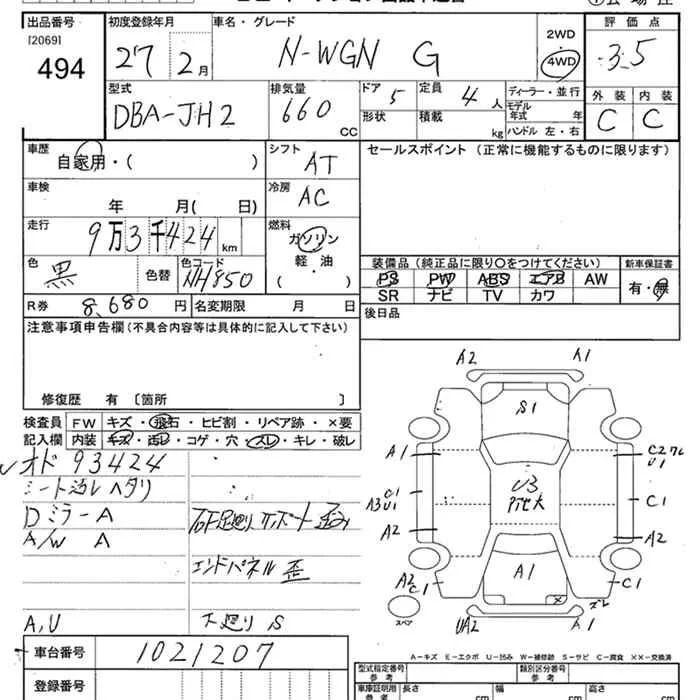 出品番号 初度登録年月 車名・グレード 2WD 評価点
[2069]
494 27 2月 N-WGN G 4WD 3.5
型式 排気量 ドア 定員 ディーラー・並行 外装 内装
DBA-JH2 660 CC 5 4人 モデル年式 年 C C
形状 積載 kg ハンドル 左・右
車歴 シフト セールスポイント(正常に機能するものに限ります)
自家用・( ) AT
車検 冷房
年 月( 日) AC
走行 燃料
9万3千424 km ガソリン
色 色替 色コード 軽・油
黒 NH850 ( )
装備品(純正品に限り○をつけてください) 新車保証書
PS PW ABS エアB AW 有・無
SR ナビ TV カワ
R券 8,680円 名変期限 月 日
後日品
注意事項申告欄(不具合内容等は具体的に記入して下さい)
修復歴 有〔箇所 〕
検査員記入欄 FW キズ・飛石・ヒビ割・リペア跡・×要
内装 キズ・汚レ・コゲ・穴・スレ・キレ・破レ
オド 93424
シート汚レ ヘタリ
Dミラー A
A/W A
エンドパネル歪
A,U 下廻り S
車台番号 1021207
登録番号
A2 A1
S1
A1 C2ワレ U1
C1 A3 U1 U3 C1
A2 A2
A2 C1 A1 C1
ズレ
スペア UA2 A1
A-キズ E-エクボ U-凹み W-補修跡 S-サビ C-腐食 ××-交換済
型式指定番号 参考 類別区分番号 参考
車庫証明用 参考 長さ cm 幅 cm 高さ cm